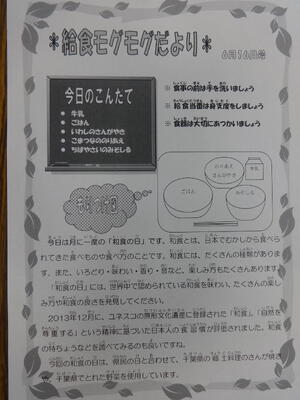 ＊給食モグモグだより＊
6月16日号
今日のこんだて
● 牛乳
● ごはん
● いわしのさんがやき
● こまつなののりあえ
● ちばやさいのみそしる
※ 食事の前は手を洗いましょう
※ 給食当番は身支度をしましょう
※ 食器は大切にあつかいましょう
のりあえ
さんがやき
牛乳
ごはん
みそしる
今日は月に一度の「和食の日」です。和食とは、日本でむかしから食べら
れてきた食べものや食べ方のことです。和食には、たくさんの種類がありま
す。また、いろどり・味わい・香り・音など、楽しみ方もたくさんあります。
「和食の日」には、世界中で認められている和食を味わい、たくさんの楽し
み方や和食の良さを発見してください。
2013年12月に、ユネスコの無形文化遺産に登録された「和食」。「自然を
尊重する」という精神に基づいた日本人の食習慣が評価されました。和食
の特ちょうなどを調べてみるのも良いですね。
今回の和食の日は、県民の日と合わせて、千葉県の郷土料理のさんが焼き
と千葉県でとれた野菜を使用しています。